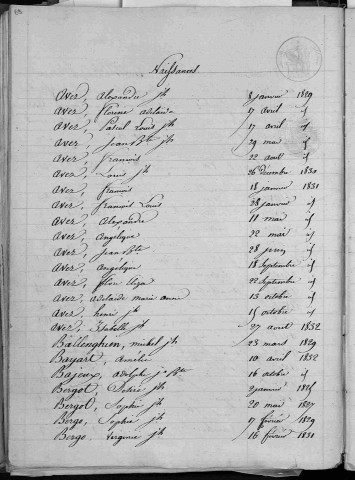 Naissances
Avez, Alexandre jh 8 janvier 1829
Avez, Florine adelaide 17 avril id
Avez, Pascal Louis jh 17 avril id
Avez, Jean Bte jh 29 mai id
Avez, françois 22 aout id
Avez, Louis jh 26 décembre 1830
Avez, françois 18 janvier 1831
Avez, françois Louis 28 janvier id
Avez, Alexandre 11 mai id
Avez, Angélique 22 mai id
Avez, Jean Bte 28 juin id
Avez, Angélique 18 Septembre id
Avez, flore Eliza 22 Septembre id
Avez, adelaide marie anne 13 octobre id
Avez, henri jh 15 octobre id
Avez, Isabelle jh 27 avril 1832
Ballenghien, michel jh 23 mars 1829
Bayart, Amélie 10 avril 1832
Bajeux, adolphe j. Bte 16 octobre id
Bergot, jh 2 janvier
Bergot, Sophie jh 20 mai 1827
Bergo, Sophie jh 17 février 1829
Bergo, Virginie jh 16 février 1831